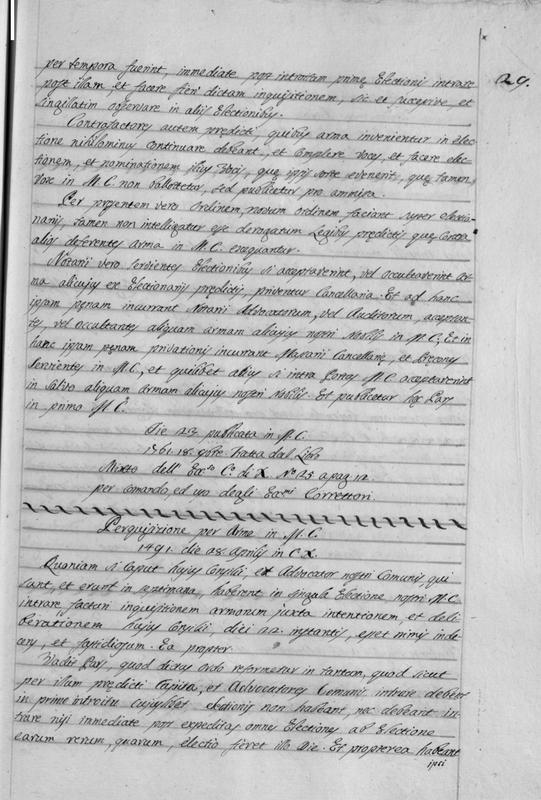 29.
per tempora fuerint, immediate post introitum primę Electionis intrare
post illam et facere fieri dictam inquisitionem, sic et succesive, et
singillatim observare in alijs Electionibus.
Contrafactores autem predicti, quibus arma invenientur in elec-
tione nihilominus continuare debeant, et complere voces, et facere elec-
tionem, et nominationem illius Vocis, quę ipsis sorte evenerit, quę tamen
Vox in M. C. non ballottetur, sed publicetur pro ammissa.
Per presentem vero Ordinem, novum ordinem faciant super electio-
narijs, tamen non intelligatur esse derogatum Legibus predictis quę contra
alios deferentes arma in M. C. exequantur.
Notarij vero servientes Electionibus si acceptaverint, vel occultaverint Ar-
ma alicujus ex Electionarijs predictis, priventur Cancellaria. Et ad hanc
ipsam penam incurrant Notarij Advocatorum, vel Auditorum, acceptan-
tes, vel occultantes aliquam armam alicujus nostri Nobilis in M. C. Et in
hanc ipsam penam privationis incurrant Massarij Cancellarię, et Precones
servientes in M. C., et quilibet alius si intra Portas M. C. acceptaverit
in salvo aliquam Armam alicujus nostri Nobilis. Et publicetur hęc Pars
in primo M. C.
Die 23 publicata in M. C.
1761. 18. 9bre. Tratta dal Libro
Misto dell' Ecc.so C.o di X. N.o 25 a pag. 12
per comando, ed uso degli Ecc.mi Correttori.
Perquisizione per Arme in M. C.
1491. die 28 Aprilis in C. X.
Quoniam si Caput hujus Consilij, et Advocator nostri Comunis, qui
sunt, et erunt in septimana, haberent in singula Electione nostri M. C.
intrare facturi inquisitionem armorum juxta intentionem, et deli-
berationem hujus Consilij, diei 22 instantis, esset nimis inde-
cens, et fastidiosum. Ea propter
Vadit Pars, quod dictus Ordo reformetur in tantum, quod sicut
per illum predicti Capita, et Advocatores Comunis intrare debebant
in primo introitu cujuslibet electionis non habeant, nec debeant in-
trare nisi immediate post expeditas omnes Electiones ab Electione
earum rerum, quarum, electio fieret illo Die. Et propterea habeant
ipsi